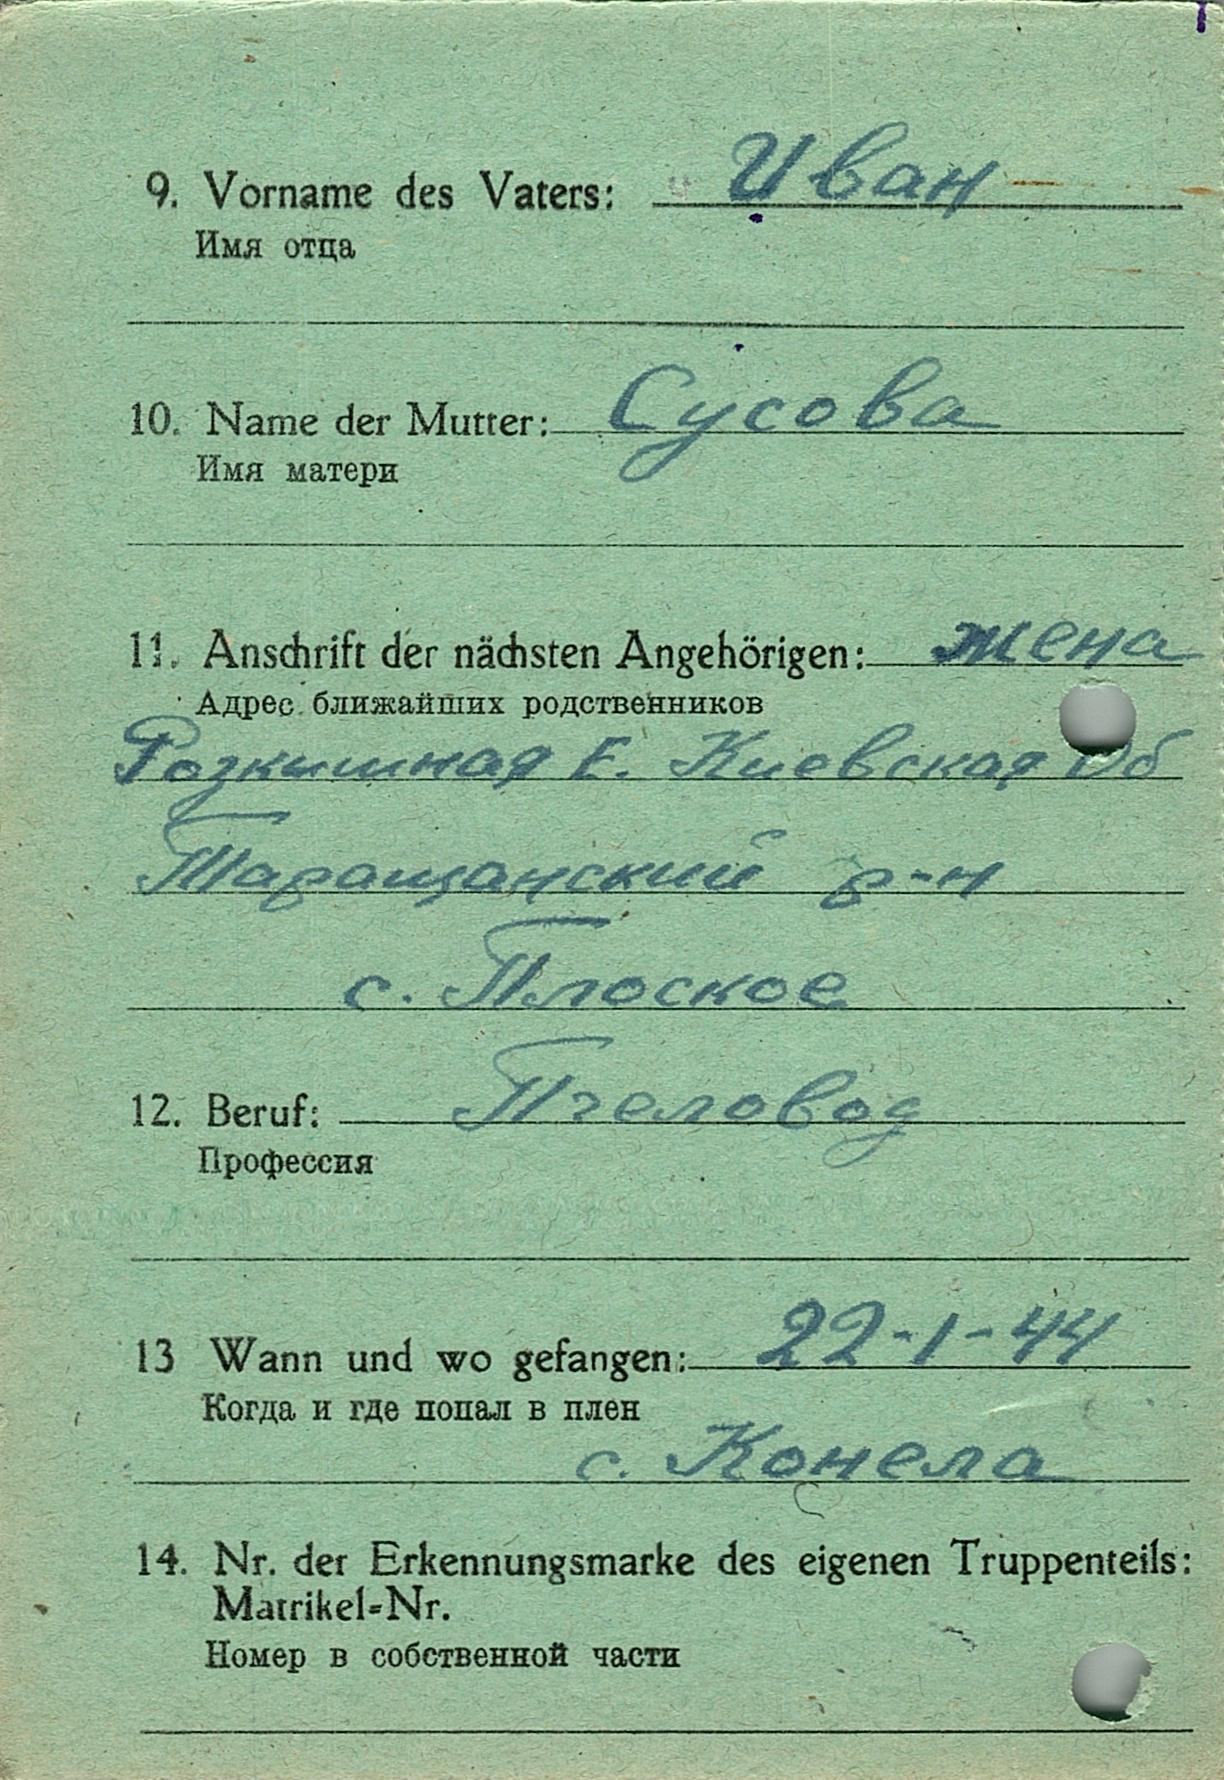 9. Vorname des Vaters: Иван
Имя отца
10. Name der Mutter: Сусова
Имя матери
11. Anschrift der nächsten Angehörigen: жена
Адрес ближайших родственников
Розкишная Е. Киевская Об
Таращанский р-н
с. Плоское
12. Beruf: Пчеловод
Профессия
13 Wann und wo gefangen: 22-1-44
Когда и где попал в плен
с. Конела
14. Nr. der Erkennungsmarke des eigenen Truppenteils:
Matrikel-Nr.
Номер в собственной части